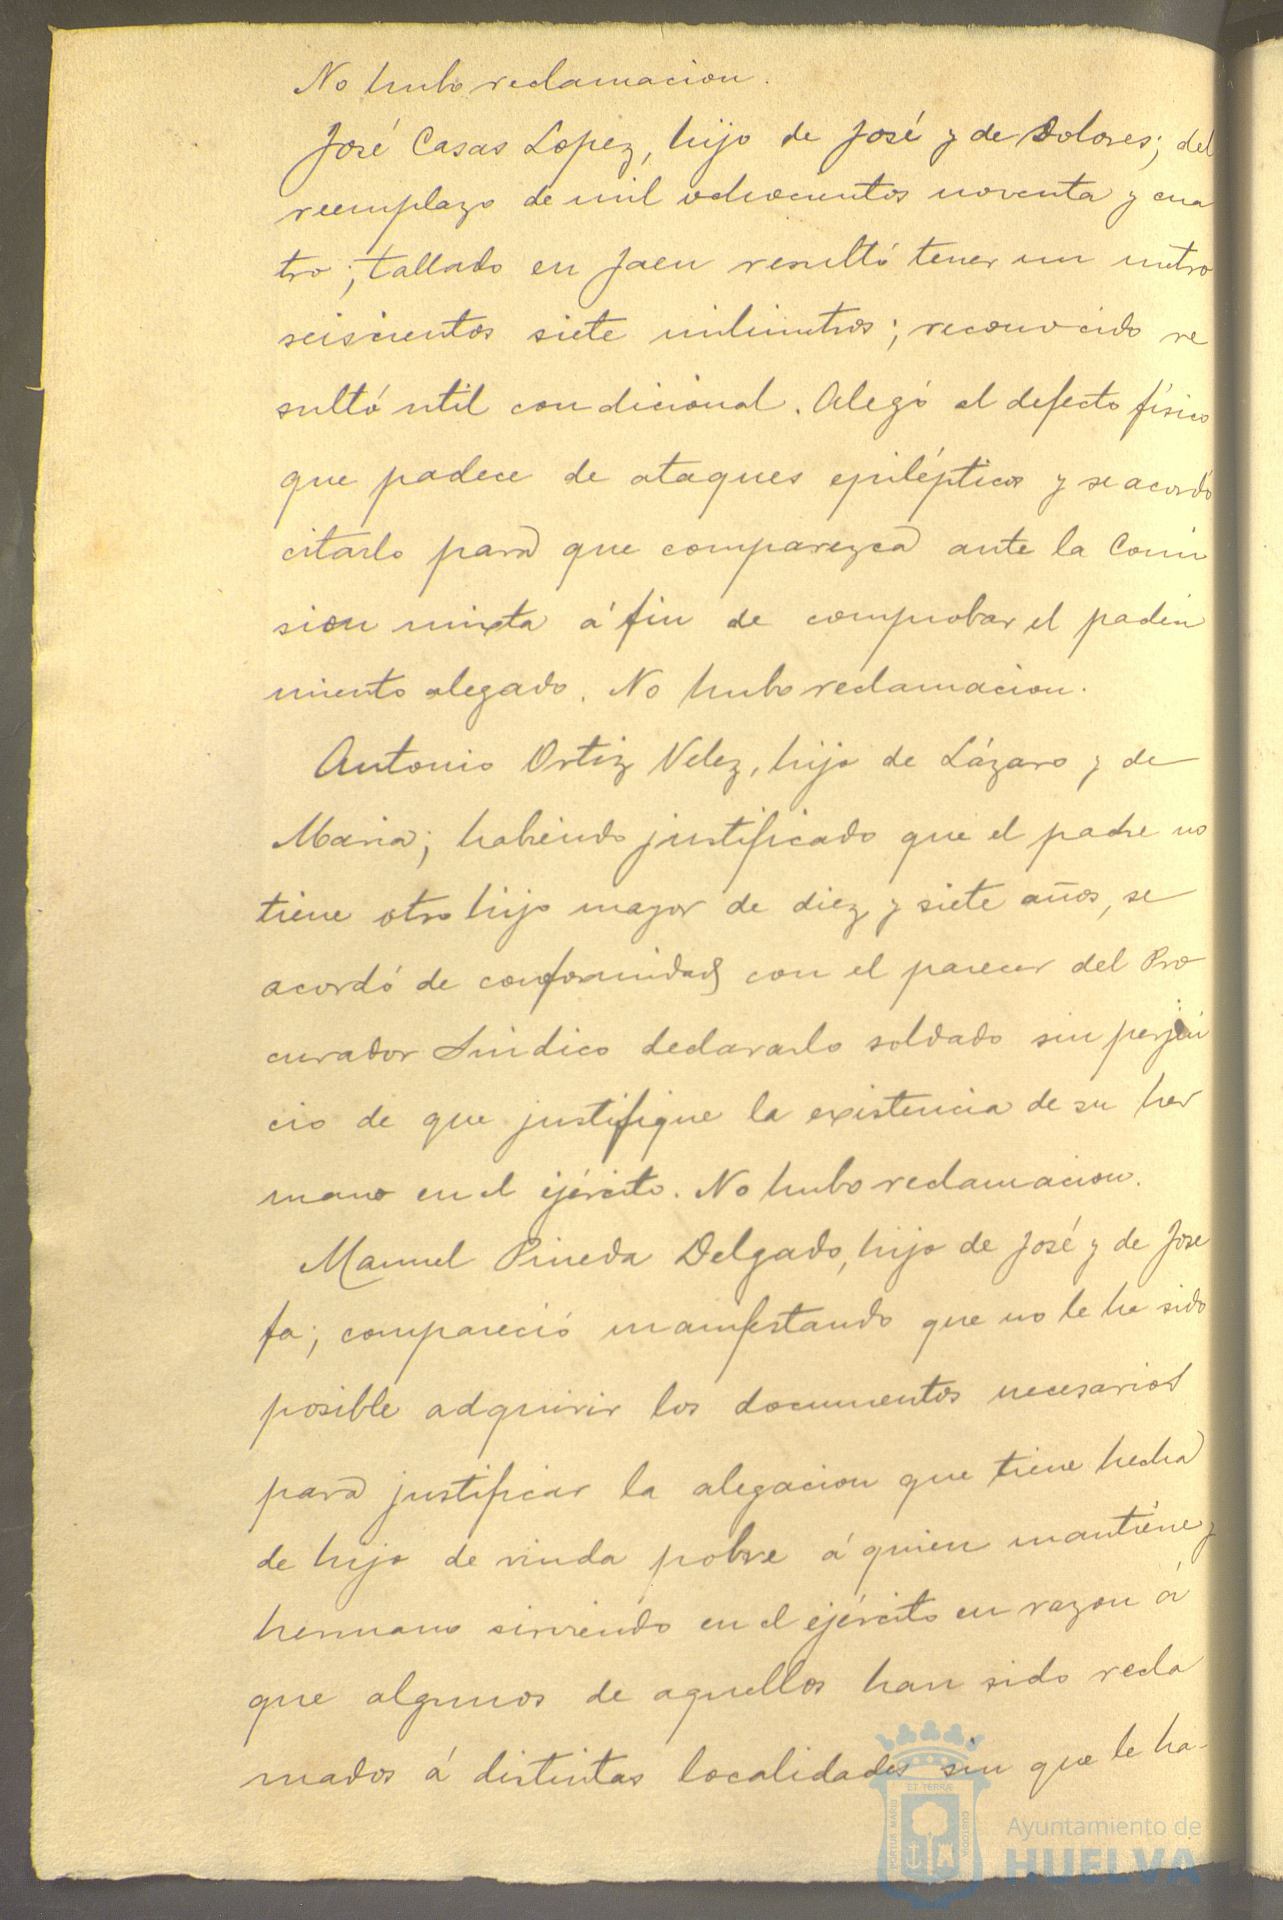 No hubo reclamacion.
José Casas Lopez, hijo de José y de Dolores; del
reemplazo de mil ochocientos noventa y cua
tro; tallado en Jaen resultó tener un metro
seiscientos siete milimetros; reconocido re
sultó util condicional. Alegó el defecto físico
que padece de ataques epilépticos y se acordó
citarlo para que comparezca ante la Comi
sion mixta á fin de comprobar el padeci
miento alegado. No hubo reclamacion.
Antonio Ortiz Velez, hijo de Lázaro y de
Maria; habiendo justificado que el padre no
tiene otro hijo mayor de diez y siete años, se
acordó de conformidad con el parecer del Pro
curador Sindico declararlo soldado sin perjui
cio de que justifique la existencia de su her
mano en el ejército. No hubo reclamacion.
Manuel Pineda Delgado, hijo de José y de Jose
fa; compareció manifestando que no le ha sido
posible adquirir los documentos necesarios
para justificar la alegacion que tiene hecha
de hijo de viuda pobre á quien mantiene y
hermano sirviendo en el ejército en razon á
que algunos de aquellos han sido recla
mados á distintas localidades sin que le ha-
PORTUS MARIS ET TERRÆ CUSTODIA
Ayuntamiento de
HUELVA